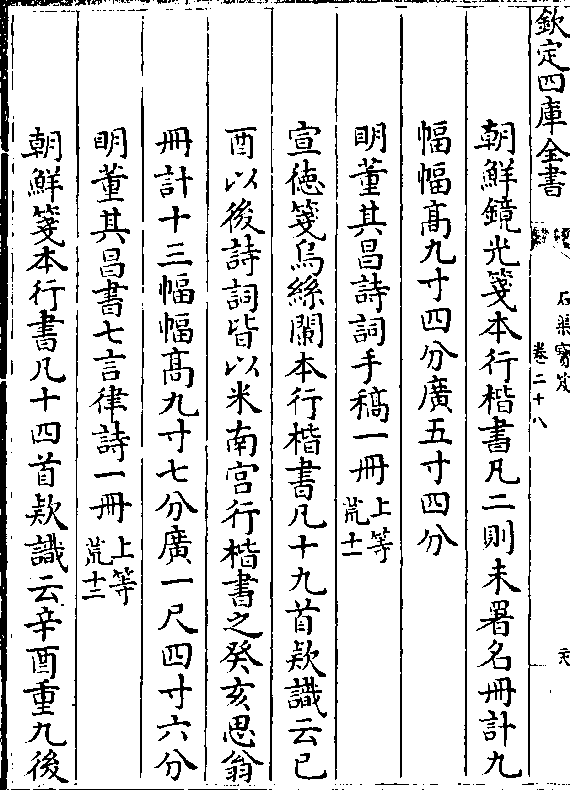 欽定四庫全書
石渠寳笈
卷二十八
朝鮮鏡光箋本行楷書凡二則未署名冊計九
幅幅髙九寸四分廣五寸四分
明董其昌詩詞手稿一冊上等荒十一
宣徳箋烏絲闌本行楷書凡十九首欵識云己
酉以後詩詞皆以米南宫行楷書之癸亥思翁
冊計十三幅幅髙九寸七分廣一尺四寸六分
明董其昌書七言律詩一冊上等荒十二
朝鮮箋本行書凡十四首欵識云辛酉重九後